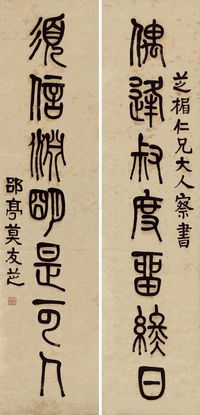 芝楣仁兄大人察書
偶逢叔度留緤日
須信淵明是可人
郘亭莫友芝